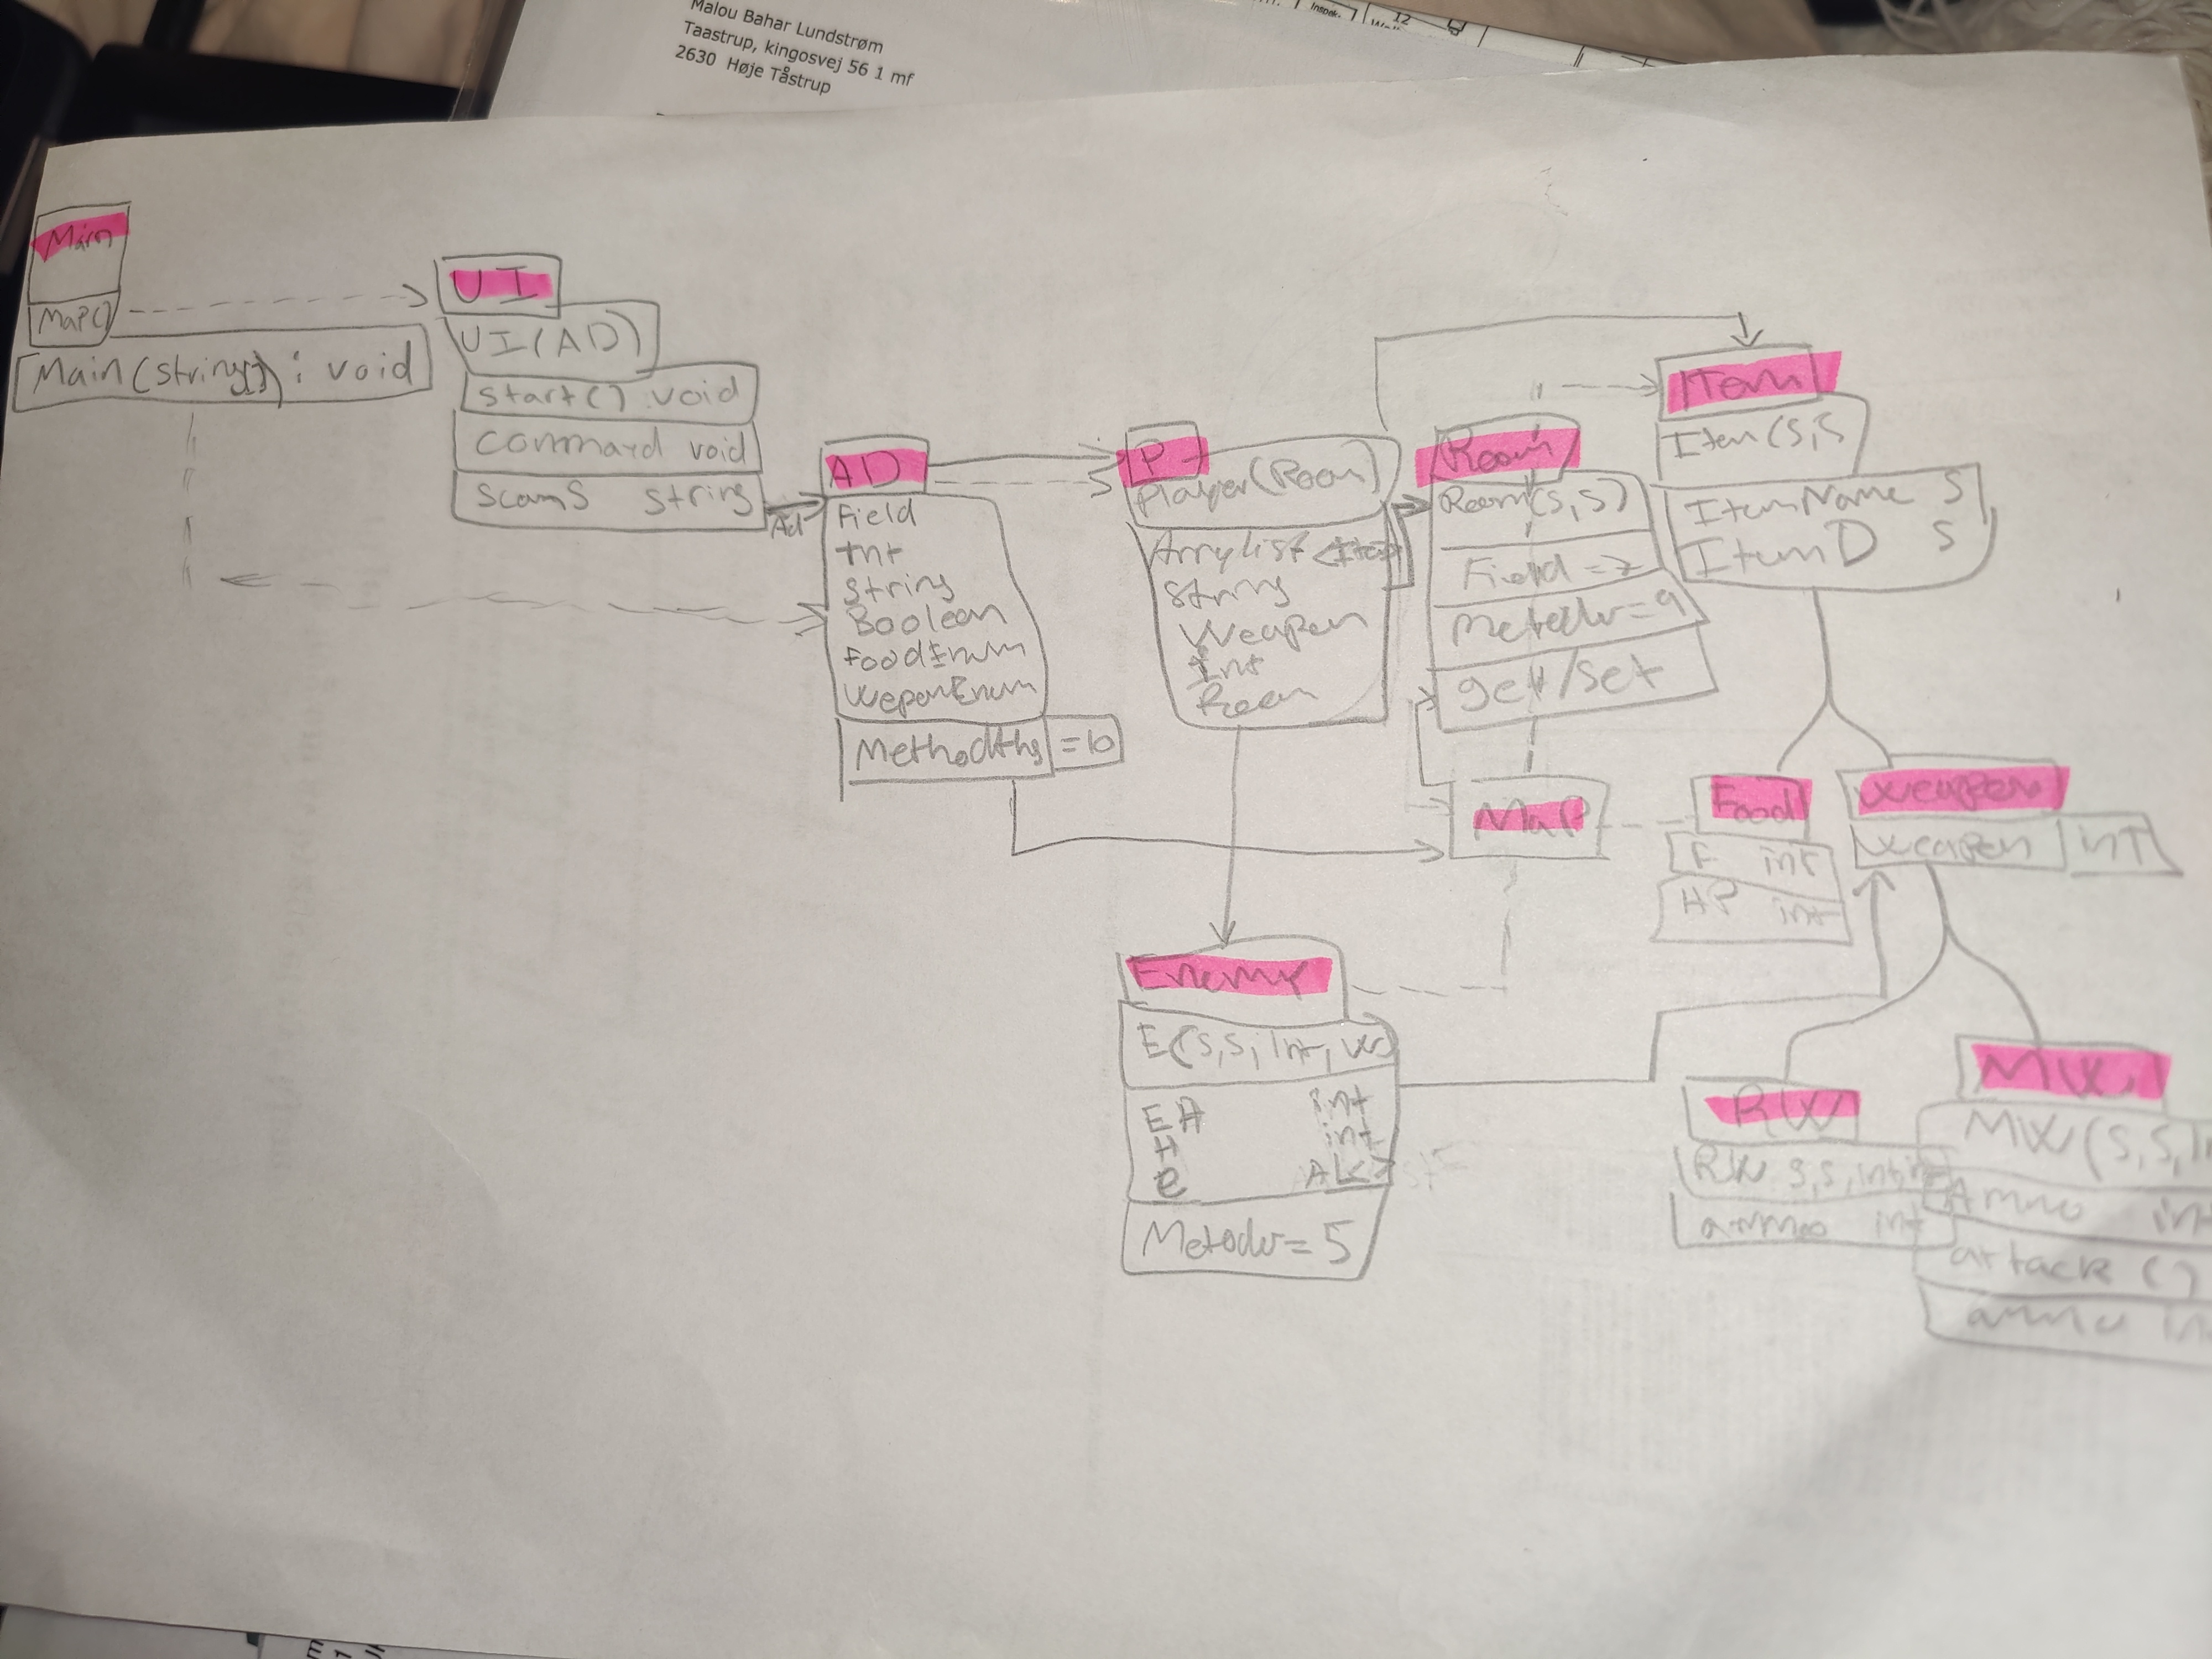 Malou Bahar Lundstrøm
Taastrup, kingosvej 56 1 mf
2630 Høje Tåstrup
Inspek.
12
Main
MaP()
Main(string[]) : void
UI
UI(AD)
start() void
Command void
ScanS string
Ad
AD
Field
Int
String
Boolean
FoodEnum
WeponEnum
=10
P
Player(Room)
Arrylist <Item>
String
Weapon
Int
Room
Room
Room(S,S)
Field =7
Metoder=9
get/set
Item
Item(S,S
ItemName S
ItemD S
MaP
Food
F int
HP int
weapon
weapon int
Enemy
E(S,S, Int, W)
EH int
H int
e AL<>
Metoder=5
RW
RW S,S,int,int
ammo int
MW
MW(S,S,In
Ammo int
attack ()
ammo in